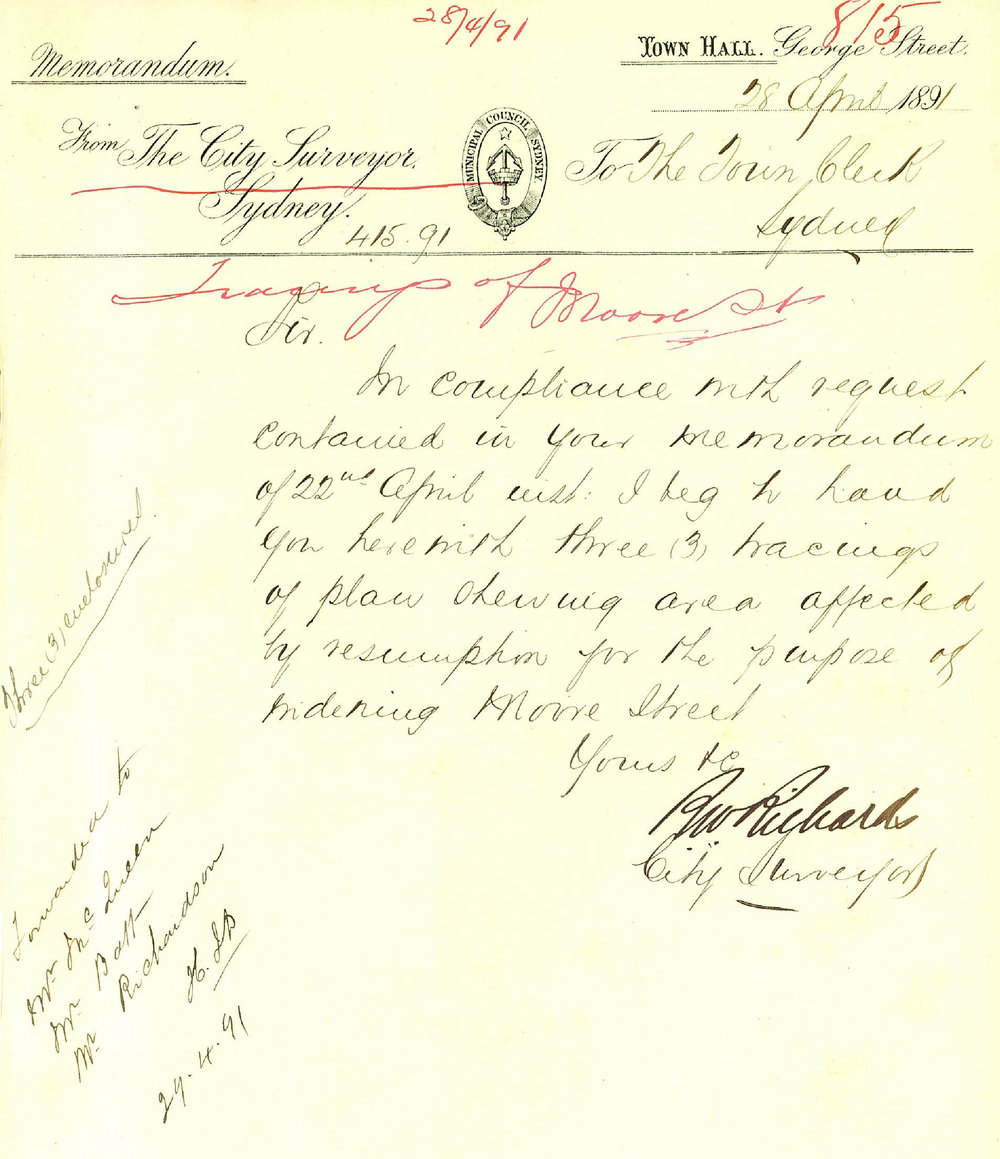 28/4/91
8/5
Memorandum.
TOWN HALL. George Street.
28 April 1891
From The City Surveyor.
Sydney.
415.91
MUNICIPAL COUNCIL SYDNEY
To The Town Clerk
Sydney
Tracings of Moore St
Sir.
In compliance with request
contained in your memorandum
of 22nd April inst: I beg to hand
you herewith three (3) tracings
of plan shewing area affected
by resumption for the purpose of
widening Moore Street
Yours &c
RW Richards
City Surveyor
Three (3) enclosures.
Forwarded to
Mr. McQueen
Mr. Batt
Mr. Richardson
29.4.91